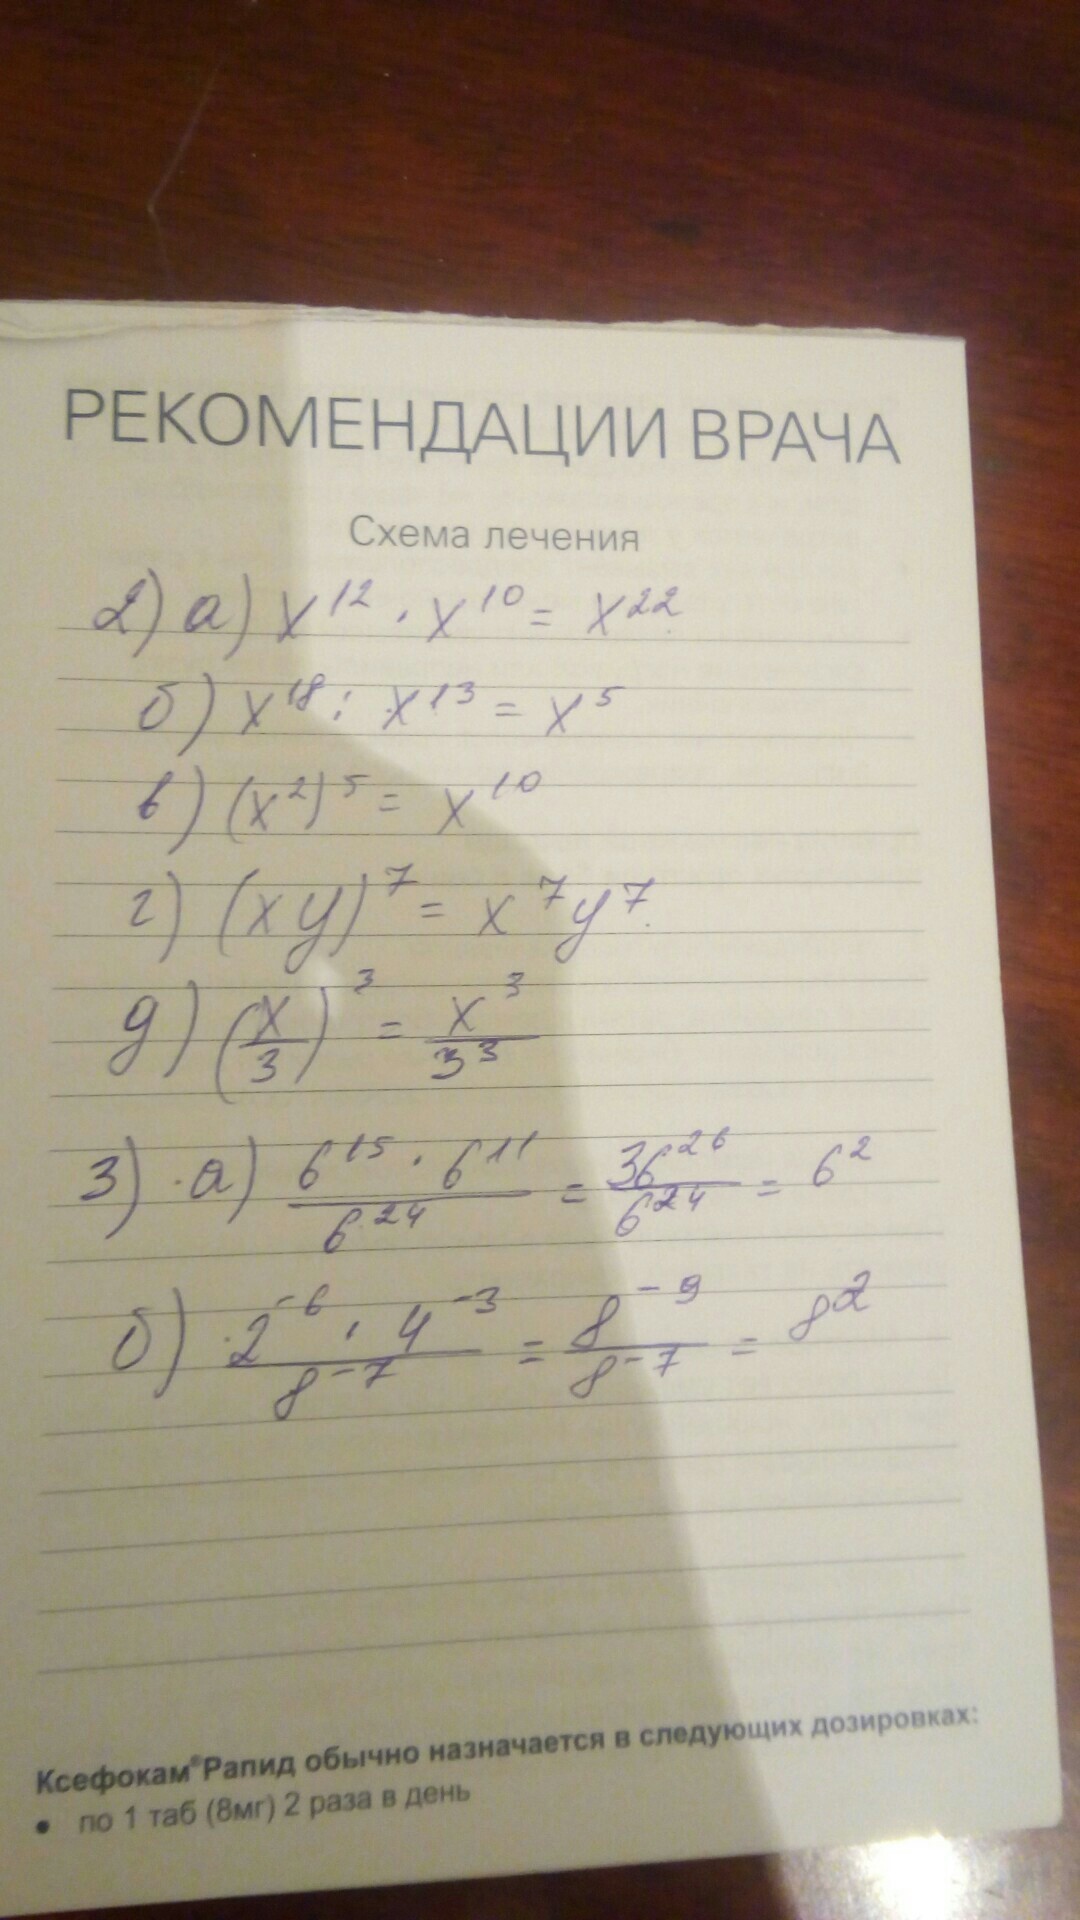 РЕКОМЕНДАЦИИ ВРАЧА
Схема лечения
2) а) x^12 · x^10 = x^22
б) x^18 : x^13 = x^5
в) (x^2)^5 = x^10
г) (xy)^7 = x^7y^7.
д) (x/3)^3 = x^3/3^3
3) а) 6^15 · 6^11 / 6^24 = 36^26 / 6^24 = 6^2
б) 2^-6 · 4^-3 / 8^-7 = 8^-9 / 8^-7 = 8^2
Ксефокам®Рапид обычно назначается в следующих дозировках:
• по 1 таб (8мг) 2 раза в день